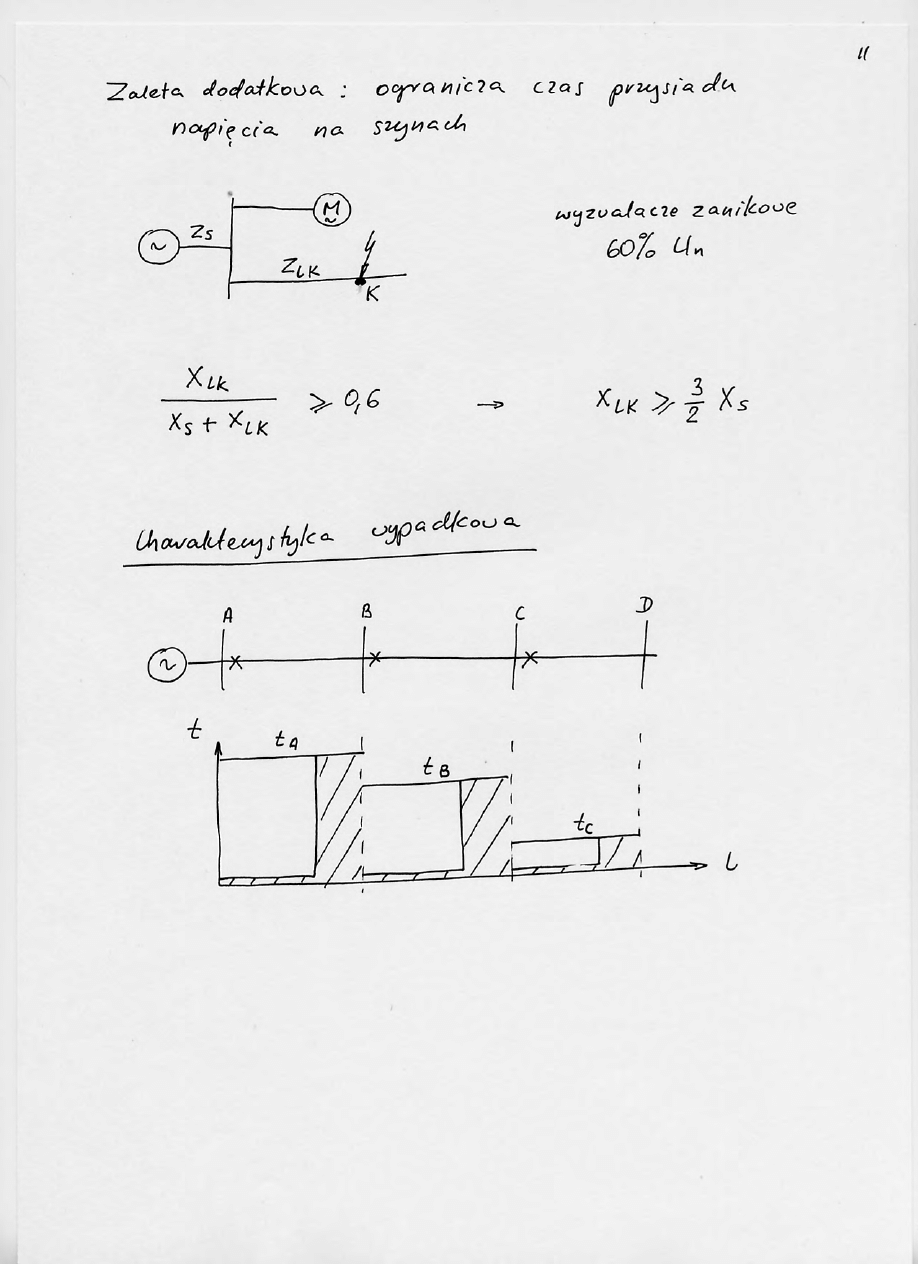 11
Zaleta dodatkowa : ogranicza czas przysiadu
napięcia na szynach
M
~
~
Zs
ZLK
K
wyzwalacze zanikowe
60% Un
XLK / (Xs + XLK) ⩾ 0,6 → XLK ⩾ 3/2 Xs
Charakterystyka wypadkowa
A B C D
~
t
tA
tB
tC
l